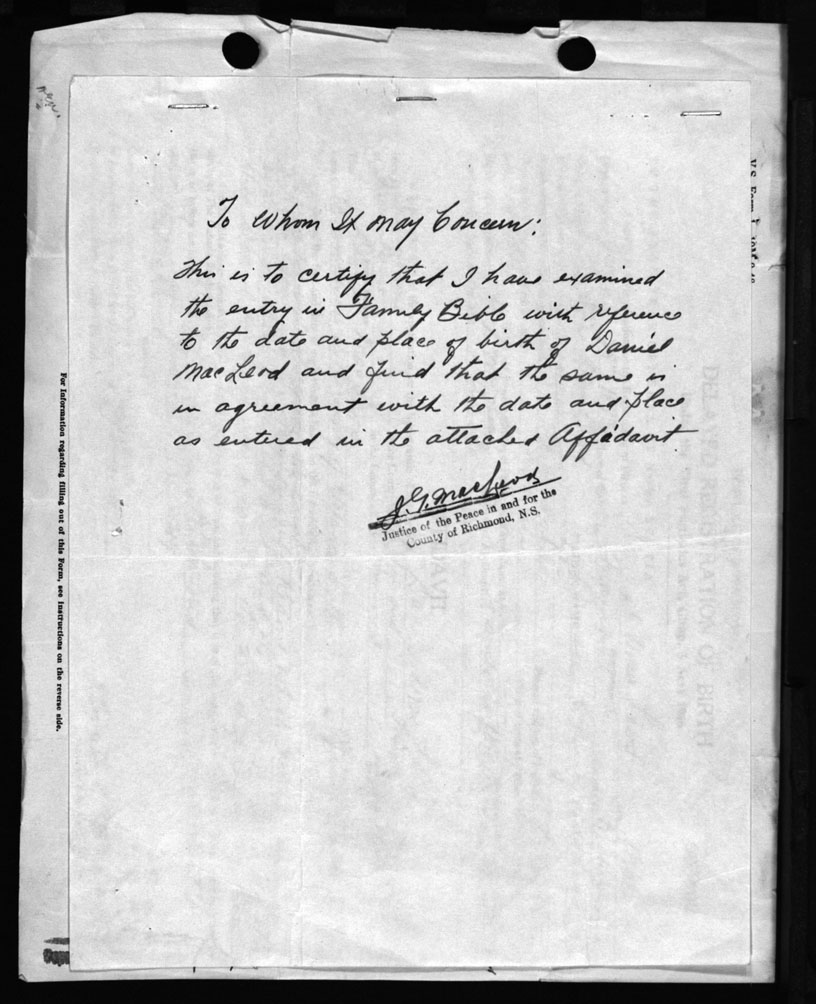 To Whom It May Concern:
This is to certify that I have examined
the entry in Family Bible with reference
to the date and place of birth of Daniel
MacLeod and find that the same is
in agreement with the date and place
as entered in the attached Affidavit.
J. G. MacLeod
Justice of the Peace in and for the
County of Richmond, N.S.
For Information regarding filling out of this Form, see Instructions on the reverse side.
V.S. Form
DEL
RATION OF BIRTH